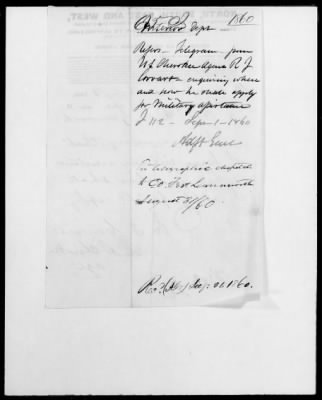 Interior Dept 1860
Refers - Telegram from
U.S. Cherokee Agent R. J.
Cowart enquiring where
and how he must apply
for Military assistance
I 112 - Sept 1 - 1860
Adjt Genl
Telegraphic
to Co. Fort Leavenworth
August 31/60
Rec. Sep. 01. 1860.